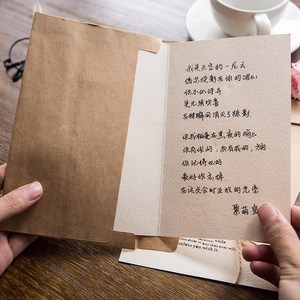 我是天空的一片云
偶尔投影在你的波心
你不必讶异
更无须欢喜
在转瞬间消灭了踪影
你我相逢在黑夜的海上
你有你的，我有我的，方向
你记得也好
最好你忘掉
在这交会时互放的光亮